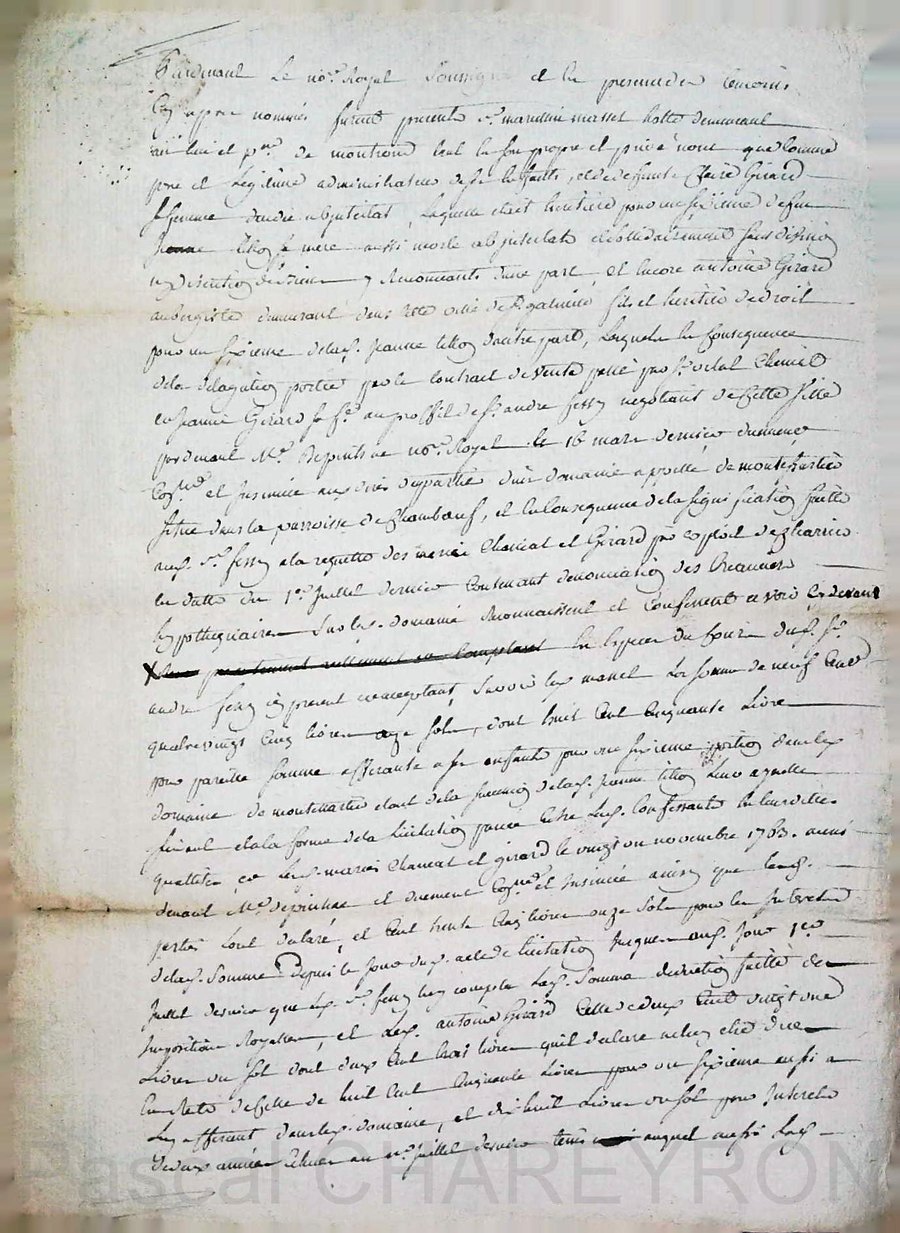 Pardevant Le no.re Royal Soussigné et en presence des temoins
Cy apres nommés furent presents s.r masset hotte demeurant
au lieu et p.sse de montrond tant en son propre et privé nom que comme
pere et Legitime administrateur de ses Enfants, et de deffunte Claire Girard
sa femme decedée abjntestat, Laquelle etoit heritiere pour un sixieme de feue
Jeanne sa mere aussi morte abjntestat
y Renonceants d'une part, et Encore antoine Girard
aubergiste demeurant dans cette ville de St galmier, fils et heritier de droit
pour un sixieme de lad. Jeanne d'autre part, Lesquels En Consequence
de la delegation portée par le contrat de vente passé par Sr vital Chaneat
et Jeanne Girard sa fe. au proffit de Sr. andre fessy negotiant de Cette ville
pardevant Me. no.re Royal le 16 mars dernier duement
Con.llé et Insinué aux dits d'un domaine appellé de montchartier
situé dans la parroisse de Chambœuf, et en Consequence de la signiffication faitte
aud. Sr. fessy a la requette des mariés Chaneat et Girard par Exploit de
En datte du 1er. Juillet dernier Contenant denonciation des Creanciers
hypothequaires sur led. domaine Reconnaissent et Confessent avoir Cy devant
Reçu en Especes du Cours dud. Sr.
andre fessy icy present et acceptant, Savoir led. masset La somme de neuf Cent
quatre vingt Cinq livres onze sols, dont huit Cent Cinquante Livres
pour pareille somme afferante a ses enfants pour un sixieme portion dans led.
domaine de montchartier etant de la succession de lad. Jeanne Leur ayeulle
suivant et a la forme de la licitation passée Entre Lesd. Confessants En leurs dittes
qualittés, et Lesd. mariés Chaneat et girard le vingt un novembre 1763. aussi
devant Me. et duement Con.llé et Insinuée ainsy que lesd.
parties L'ont declaré, et Cent trente Cinq livres onze sols pour les Interets
de lad. somme depuis le Jour dud. acte de licitation Jusques aud. Jour 1er
Juillet dernier que led. Sr. fessy Luy compta Lad. somme deduction faitte des
Impositions Royalles, et Led. antoine Girard Celle de deux Cent vingt une
Livres un sol dont deux Cent trois livres qu'il declare
En Reste de Celle de huit Cent Cinquante Livres pour un sixieme aussi a
Luy afferant dans led. domaine, et dix huit Livres un sol pour Interets
de deux années Echues au 1er. Juillet dernier tems auquel aussi Led.
Pascal CHAREYRON